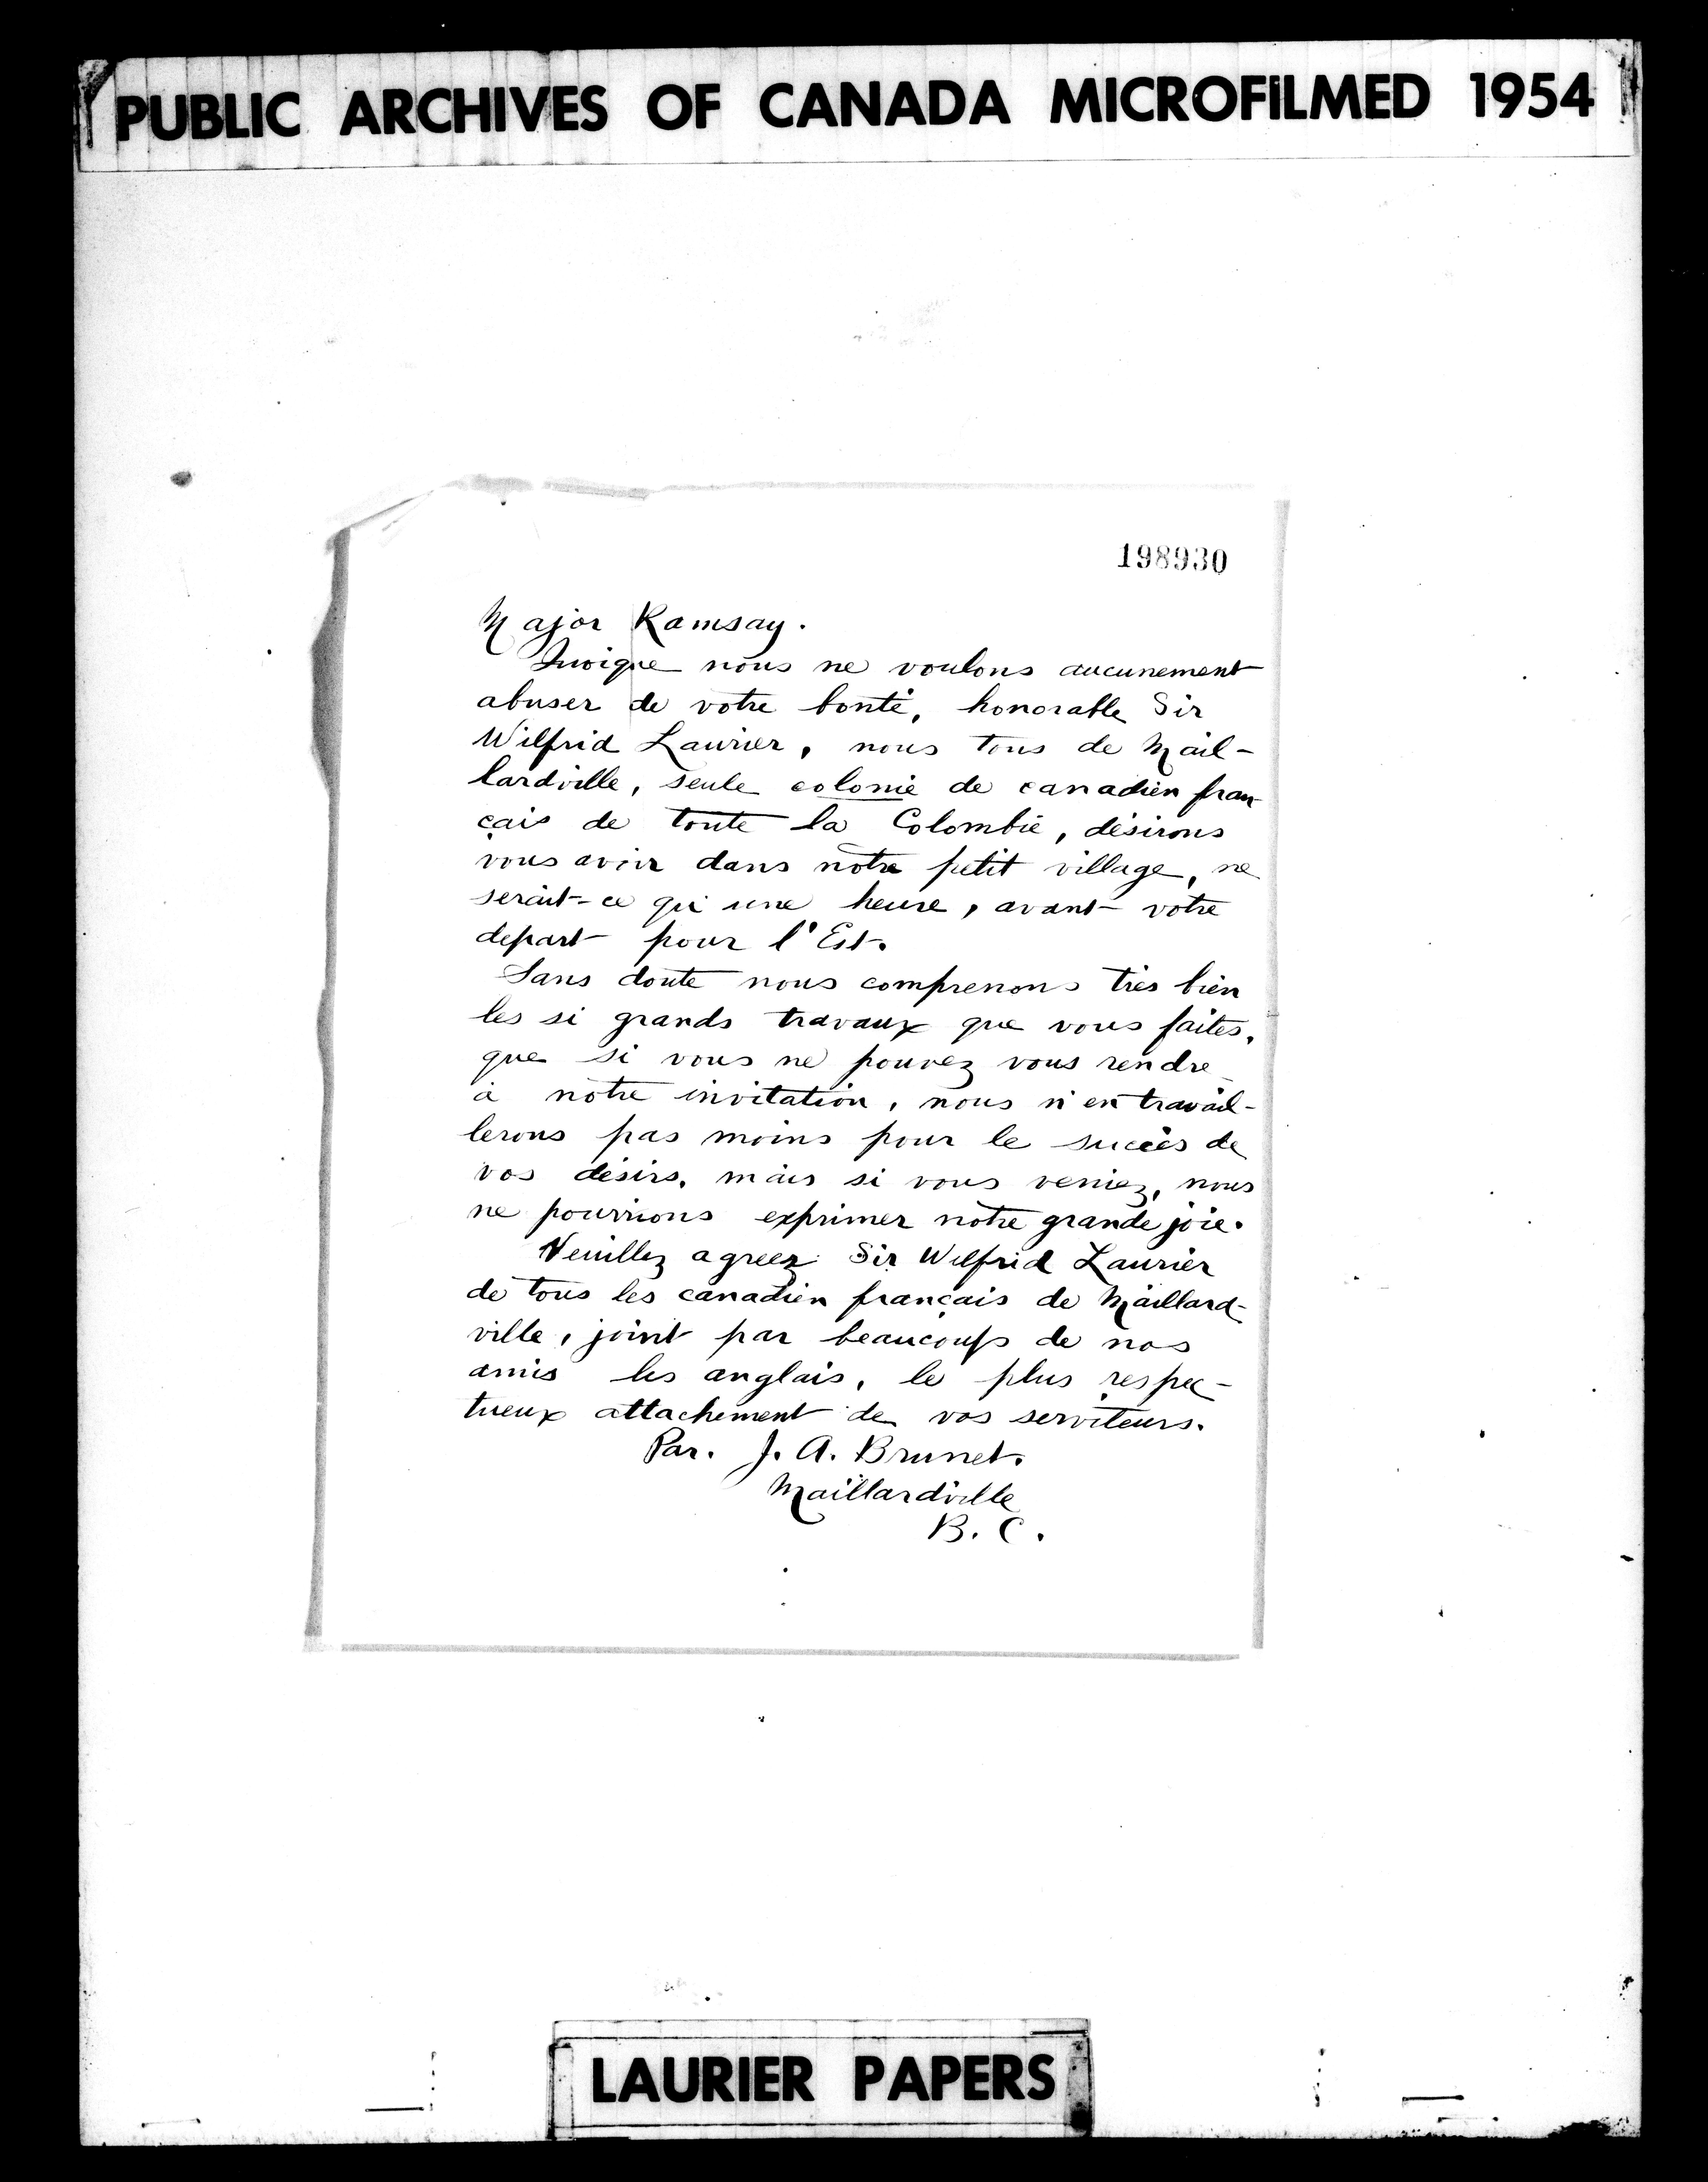 PUBLIC ARCHIVES OF CANADA MICROFILMED 1954
198930
Major Ramsay.
Quoique nous ne voulons aucunement
abuser de votre bonté, honorable Sir
Wilfrid Laurier, nous tous de Mail-
lardville, seule colonie de canadien fran-
çais de toute la Colombie, désirons
vous avoir dans notre petit village, ne
serait-ce qu'une heure, avant votre
depart pour l'Est.
Sans doute nous comprenons très bien
les si grands travaux que vous faites,
que si vous ne pouvez vous rendre
à notre invitation, nous n'en travail-
lerons pas moins pour le succès de
vos désirs, mais si vous veniez, nous
ne pourrions exprimer notre grande joie.
Veuillez agreez Sir Wilfrid Laurier
de tous les canadien français de Maillard-
ville, joint par beaucoup de nos
amis les anglais, le plus respec-
tueux attachement de vos serviteurs.
Par. J. A. Brunet.
Maillardville
B. C.
LAURIER PAPERS